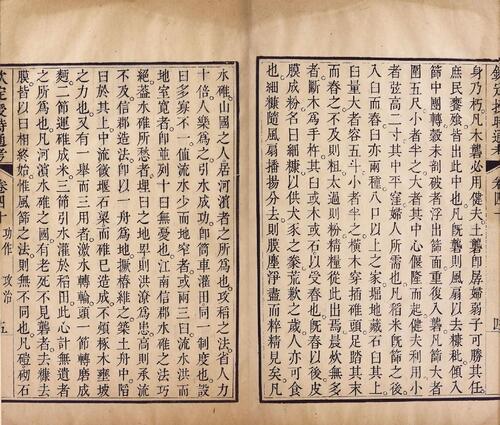 身乃朽。凡木礱必用健夫。土礱即孱婦弱子可勝其任。
庶民饔飧皆出此中也。凡既礱則風扇以去糠秕。傾入
篩中團轉。穀未剖破者浮出篩面。重復入礱。凡篩大者
圍五尺。小者半之。大者其中心偃隆而起。健夫利用。小
者弦高二寸。其中平窪。婦人所需也。凡稻米既篩之後。
入臼而舂。臼亦兩種。八口以上之家。堀地藏石臼其上。
臼量大者容五斗。小者半之。橫木穿插碓頭。足踏其末
而舂之。不及則粗。太過則粉。精糧從此出焉。晨炊無多
者。斷木為手杵。其臼或木或石以受舂也。既舂以後。皮
膜成粉。名曰細糠。以供犬豕之豢。荒歉之歲。人亦可食
也。細糠隨風扇播揚分去。則膜塵淨盡而粹精見矣。凡
水碓。山國之人居河濱者之所為也。攻稻之法。省人力
十倍。人樂為之。引水成功。即筒車灌田同一制度也。設
臼多寡不一。值流水少而地窄者。或兩三臼。流水洪而
地室寬者。即並列十臼無憂也。江南信郡水碓之法巧
絕。蓋水碓所愁者。埋臼之地。卑則洪潦為患。高則承流
不及。信郡造法。即以一舟為地。撅樁維之。築土舟中。陷
臼於其上。中流微堰石梁。而碓已造成。不煩椓木壅坡
之力也。又有一舉而三用者。激水轉輪頭。一節轉磨成
麪。二節運碓成米。三節引水灌於稻田。此心計無遺者
之所為也。凡河濱水碓之國。有老死不見礱者。去糠去
膜。皆以臼相終始。惟風篩之法。則無不同也。凡磑砌石
欽定授時通考 卷四十 功作 攻治 五